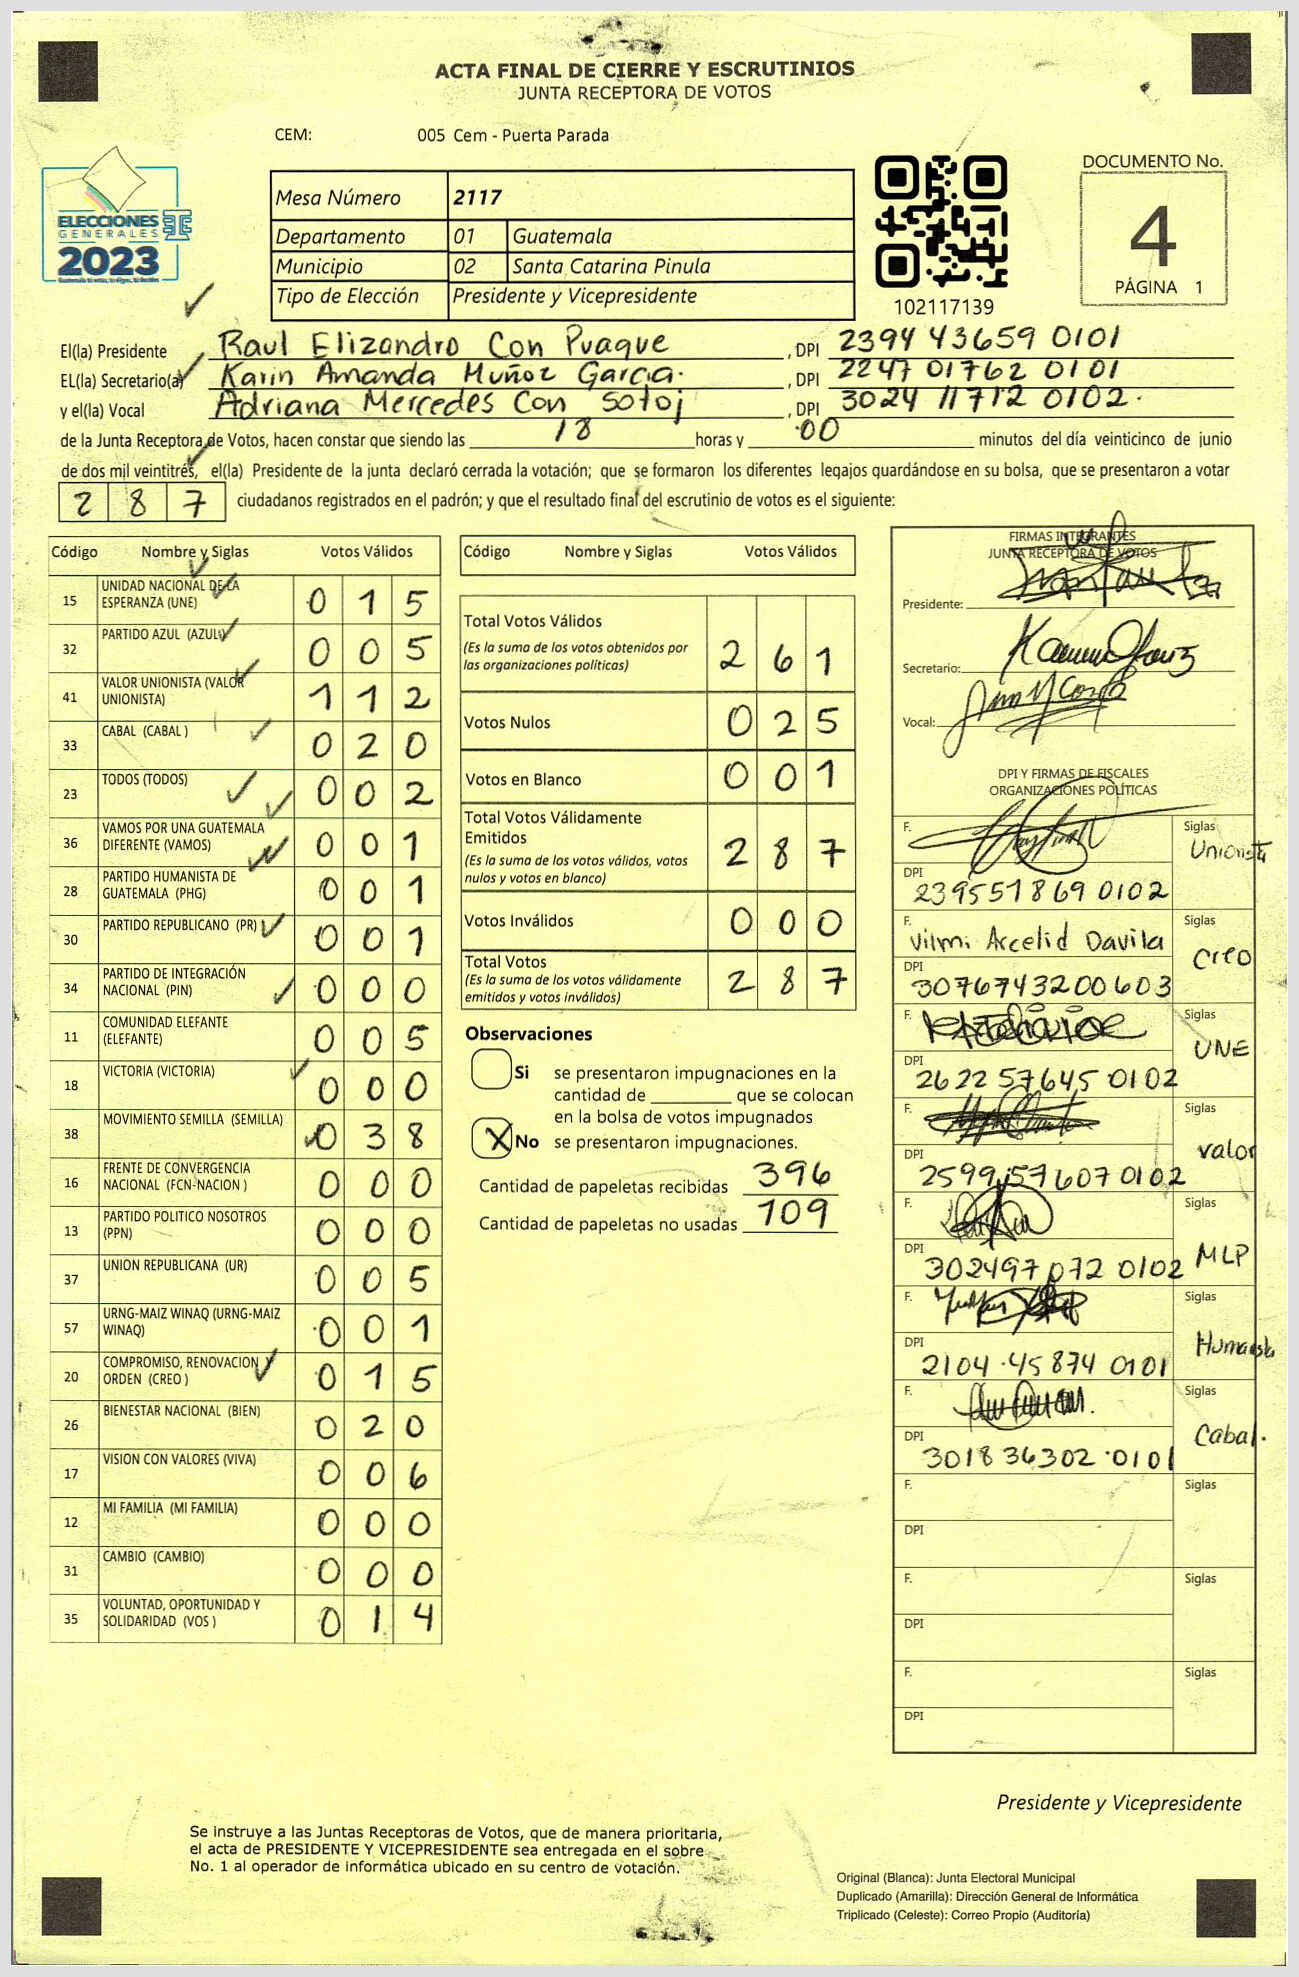 ACTA FINAL DE CIERRE Y ESCRUTINIOS
JUNTA RECEPTORA DE VOTOS
CEM: 005 Cem - Puerta Parada
ELECCIONES
GENERALES
2023
Mesa Número 2117
Departamento 01 Guatemala
Municipio 02 Santa Catarina Pinula
Tipo de Elección Presidente y Vicepresidente
102117139
DOCUMENTO No.
4
PÁGINA 1
El(la) Presidente Raul Elizandro Con Puaque, DPI 2394 43659 0101
EL(la) Secretario(a) Karin Amanda Muñoz Garcia., DPI 2247 01762 0101
y el(la) Vocal Adriana Mercedes Con Sotoj, DPI 3024 11712 0102.
de la Junta Receptora de Votos, hacen constar que siendo las 18 horas y 00 minutos del día veinticinco de junio
de dos mil veintitrés, el(la) Presidente de la junta declaró cerrada la votación; que se formaron los diferentes legajos guardándose en su bolsa, que se presentaron a votar
287 ciudadanos registrados en el padrón; y que el resultado final del escrutinio de votos es el siguiente:
Código Nombre y Siglas Votos Válidos
15 UNIDAD NACIONAL DE LA ESPERANZA (UNE) 015
32 PARTIDO AZUL (AZUL) 005
41 VALOR UNIONISTA (VALOR UNIONISTA) 112
33 CABAL (CABAL ) 020
23 TODOS (TODOS) 002
36 VAMOS POR UNA GUATEMALA DIFERENTE (VAMOS) 001
28 PARTIDO HUMANISTA DE GUATEMALA (PHG) 001
30 PARTIDO REPUBLICANO (PR) 001
34 PARTIDO DE INTEGRACIÓN NACIONAL (PIN) 000
11 COMUNIDAD ELEFANTE (ELEFANTE) 005
18 VICTORIA (VICTORIA) 000
38 MOVIMIENTO SEMILLA (SEMILLA) 038
16 FRENTE DE CONVERGENCIA NACIONAL (FCN-NACION ) 000
13 PARTIDO POLITICO NOSOTROS (PPN) 000
37 UNION REPUBLICANA (UR) 005
57 URNG-MAIZ WINAQ (URNG-MAIZ WINAQ) 001
20 COMPROMISO, RENOVACION Y ORDEN (CREO ) 015
26 BIENESTAR NACIONAL (BIEN) 020
17 VISION CON VALORES (VIVA) 006
12 MI FAMILIA (MI FAMILIA) 000
31 CAMBIO (CAMBIO) 000
35 VOLUNTAD, OPORTUNIDAD Y SOLIDARIDAD (VOS ) 014
Código Nombre y Siglas Votos Válidos
Total Votos Válidos 261
(Es la suma de los votos obtenidos por
las organizaciones políticas)
Votos Nulos 025
Votos en Blanco 001
Total Votos Válidamente
Emitidos 287
(Es la suma de los votos válidos, votos
nulos y votos en blanco)
Votos Inválidos 000
Total Votos 287
(Es la suma de los votos válidamente
emitidos y votos inválidos)
Observaciones
Si se presentaron impugnaciones en la
cantidad de ________ que se colocan
en la bolsa de votos impugnados
X No se presentaron impugnaciones.
Cantidad de papeletas recibidas 396
Cantidad de papeletas no usadas 109
FIRMAS INTEGRANTES
JUNTA RECEPTORA DE VOTOS
Presidente:
Secretario:
Vocal:
DPI Y FIRMAS DE FISCALES
ORGANIZACIONES POLÍTICAS
F. Siglas Unionista
DPI 239551869 0102
F. Vilmi Arcelid Davila Siglas Creo
DPI 3076743200603
F. Siglas UNE
DPI 2622 57645 0102
F. Siglas valor
DPI 2599 57607 0102
F. Siglas MLP
DPI 302497072 0102
F. Siglas Humanista
DPI 2104 45874 0101
F. Siglas Cabal.
DPI 3018 36302 0101
F. Siglas
DPI
F. Siglas
DPI
F. Siglas
DPI
Presidente y Vicepresidente
Se instruye a las Juntas Receptoras de Votos, que de manera prioritaria,
el acta de PRESIDENTE Y VICEPRESIDENTE sea entregada en el sobre
No. 1 al operador de informática ubicado en su centro de votación.
Original (Blanca): Junta Electoral Municipal
Duplicado (Amarilla): Dirección General de Informática
Triplicado (Celeste): Correo Propio (Auditoría)